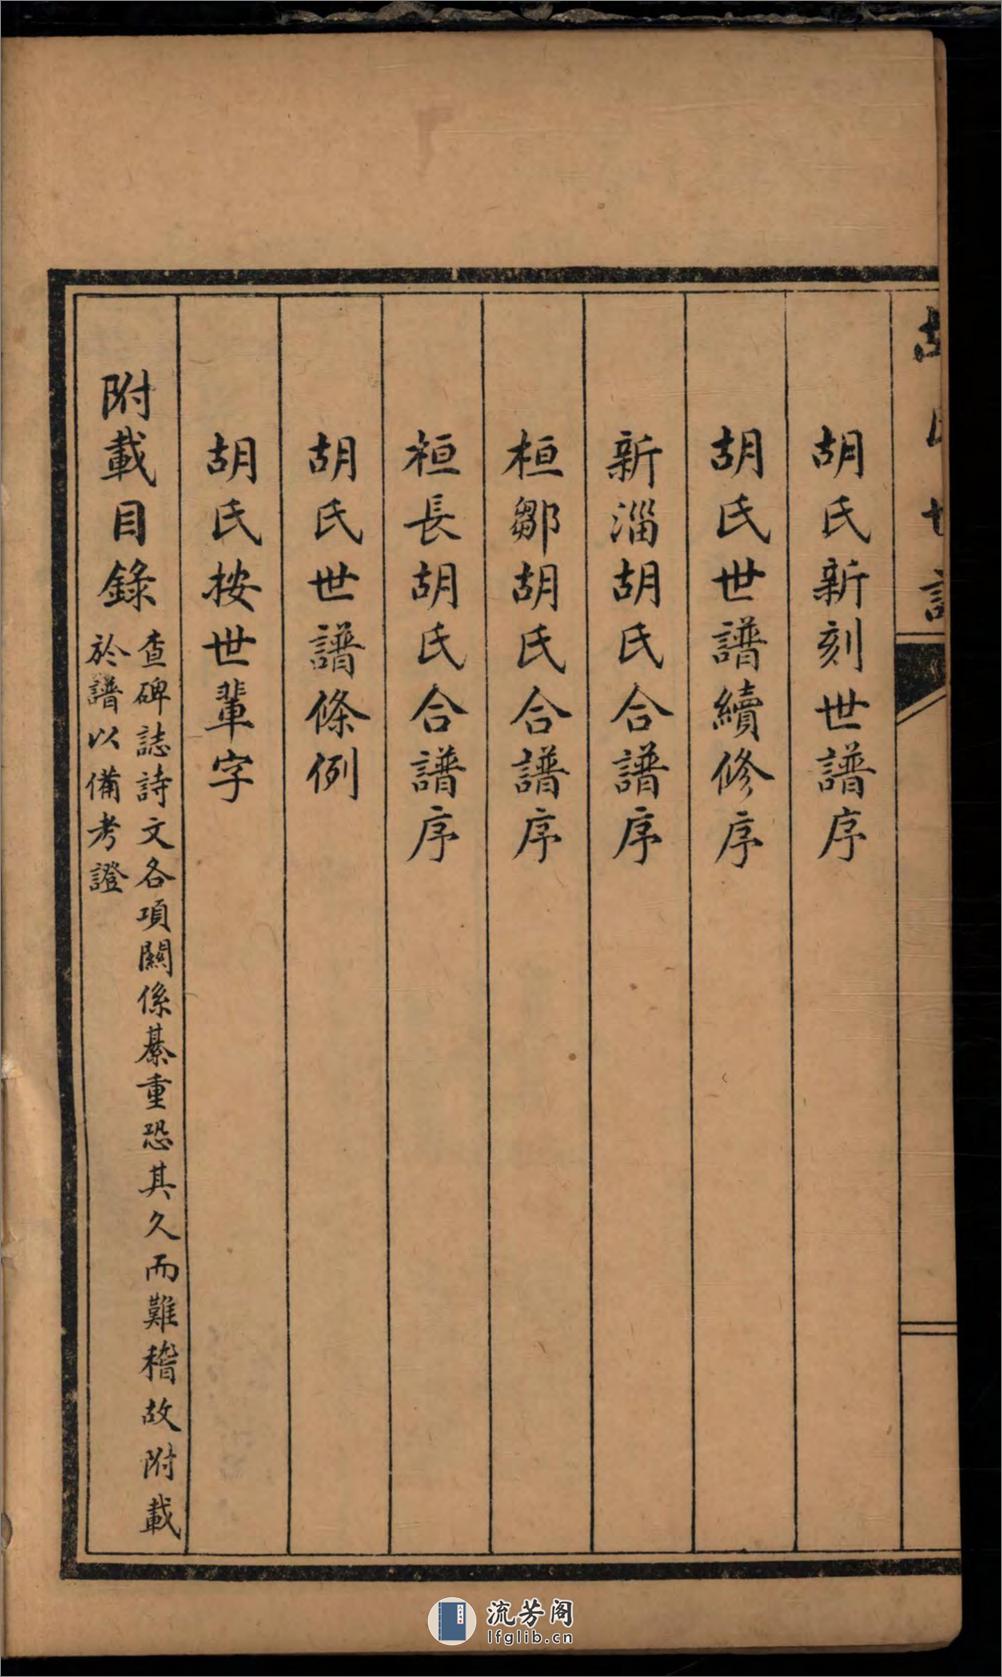 胡氏世譜
胡氏新刻世譜序
胡氏世譜續修序
新淄胡氏合譜序
桓鄒胡氏合譜序
桓長胡氏合譜序
胡氏世譜條例
胡氏按世輩字
附載目錄
查碑誌詩文各項關係綦重恐其久而難稽故附載
於譜以備考證
流芳阁
lfglib.cn